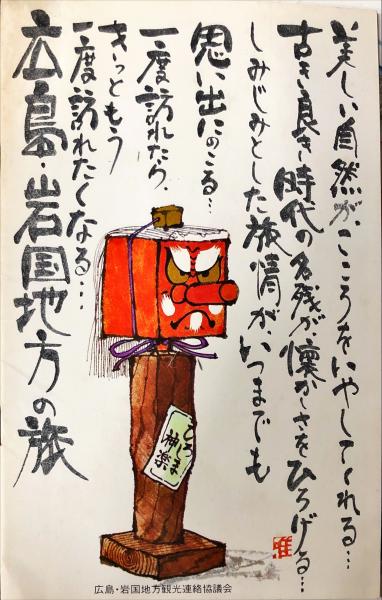 美しい自然が、こころをいやしてくれる…
古き良き時代の名残が懐かしさをひろげる…
しみじみとした旅情が、いつまでも
思い出にのこる…
一度訪れたら、
きっともう
一度訪れたくなる…
広島・岩国地方の旅
ひろしま
神楽
広島・岩国地方観光連絡協議会